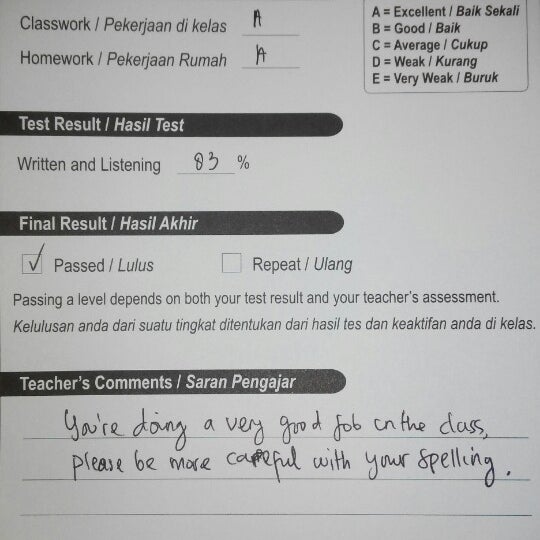 Classwork / Pekerjaan di kelas A
Homework / Pekerjaan Rumah A
A = Excellent / Baik Sekali
B = Good / Baik
C = Average / Cukup
D = Weak / Kurang
E = Very Weak / Buruk
Test Result / Hasil Test
Written and Listening 83 %
Final Result / Hasil Akhir
✓ Passed / Lulus Repeat / Ulang
Passing a level depends on both your test result and your teacher's assessment.
Kelulusan anda dari suatu tingkat ditentukan dari hasil tes dan keaktifan anda di kelas.
Teacher's Comments / Saran Pengajar
You're doing a very good job on the class,
please be more careful with your spelling.